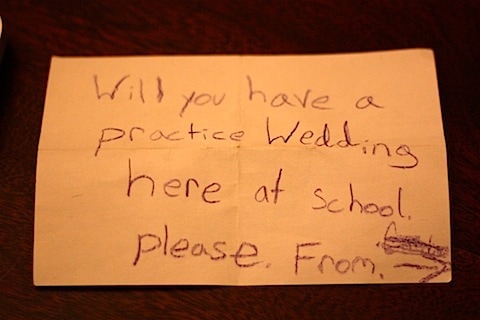 Will you have a
practice Wedding
here at school.
please. From.